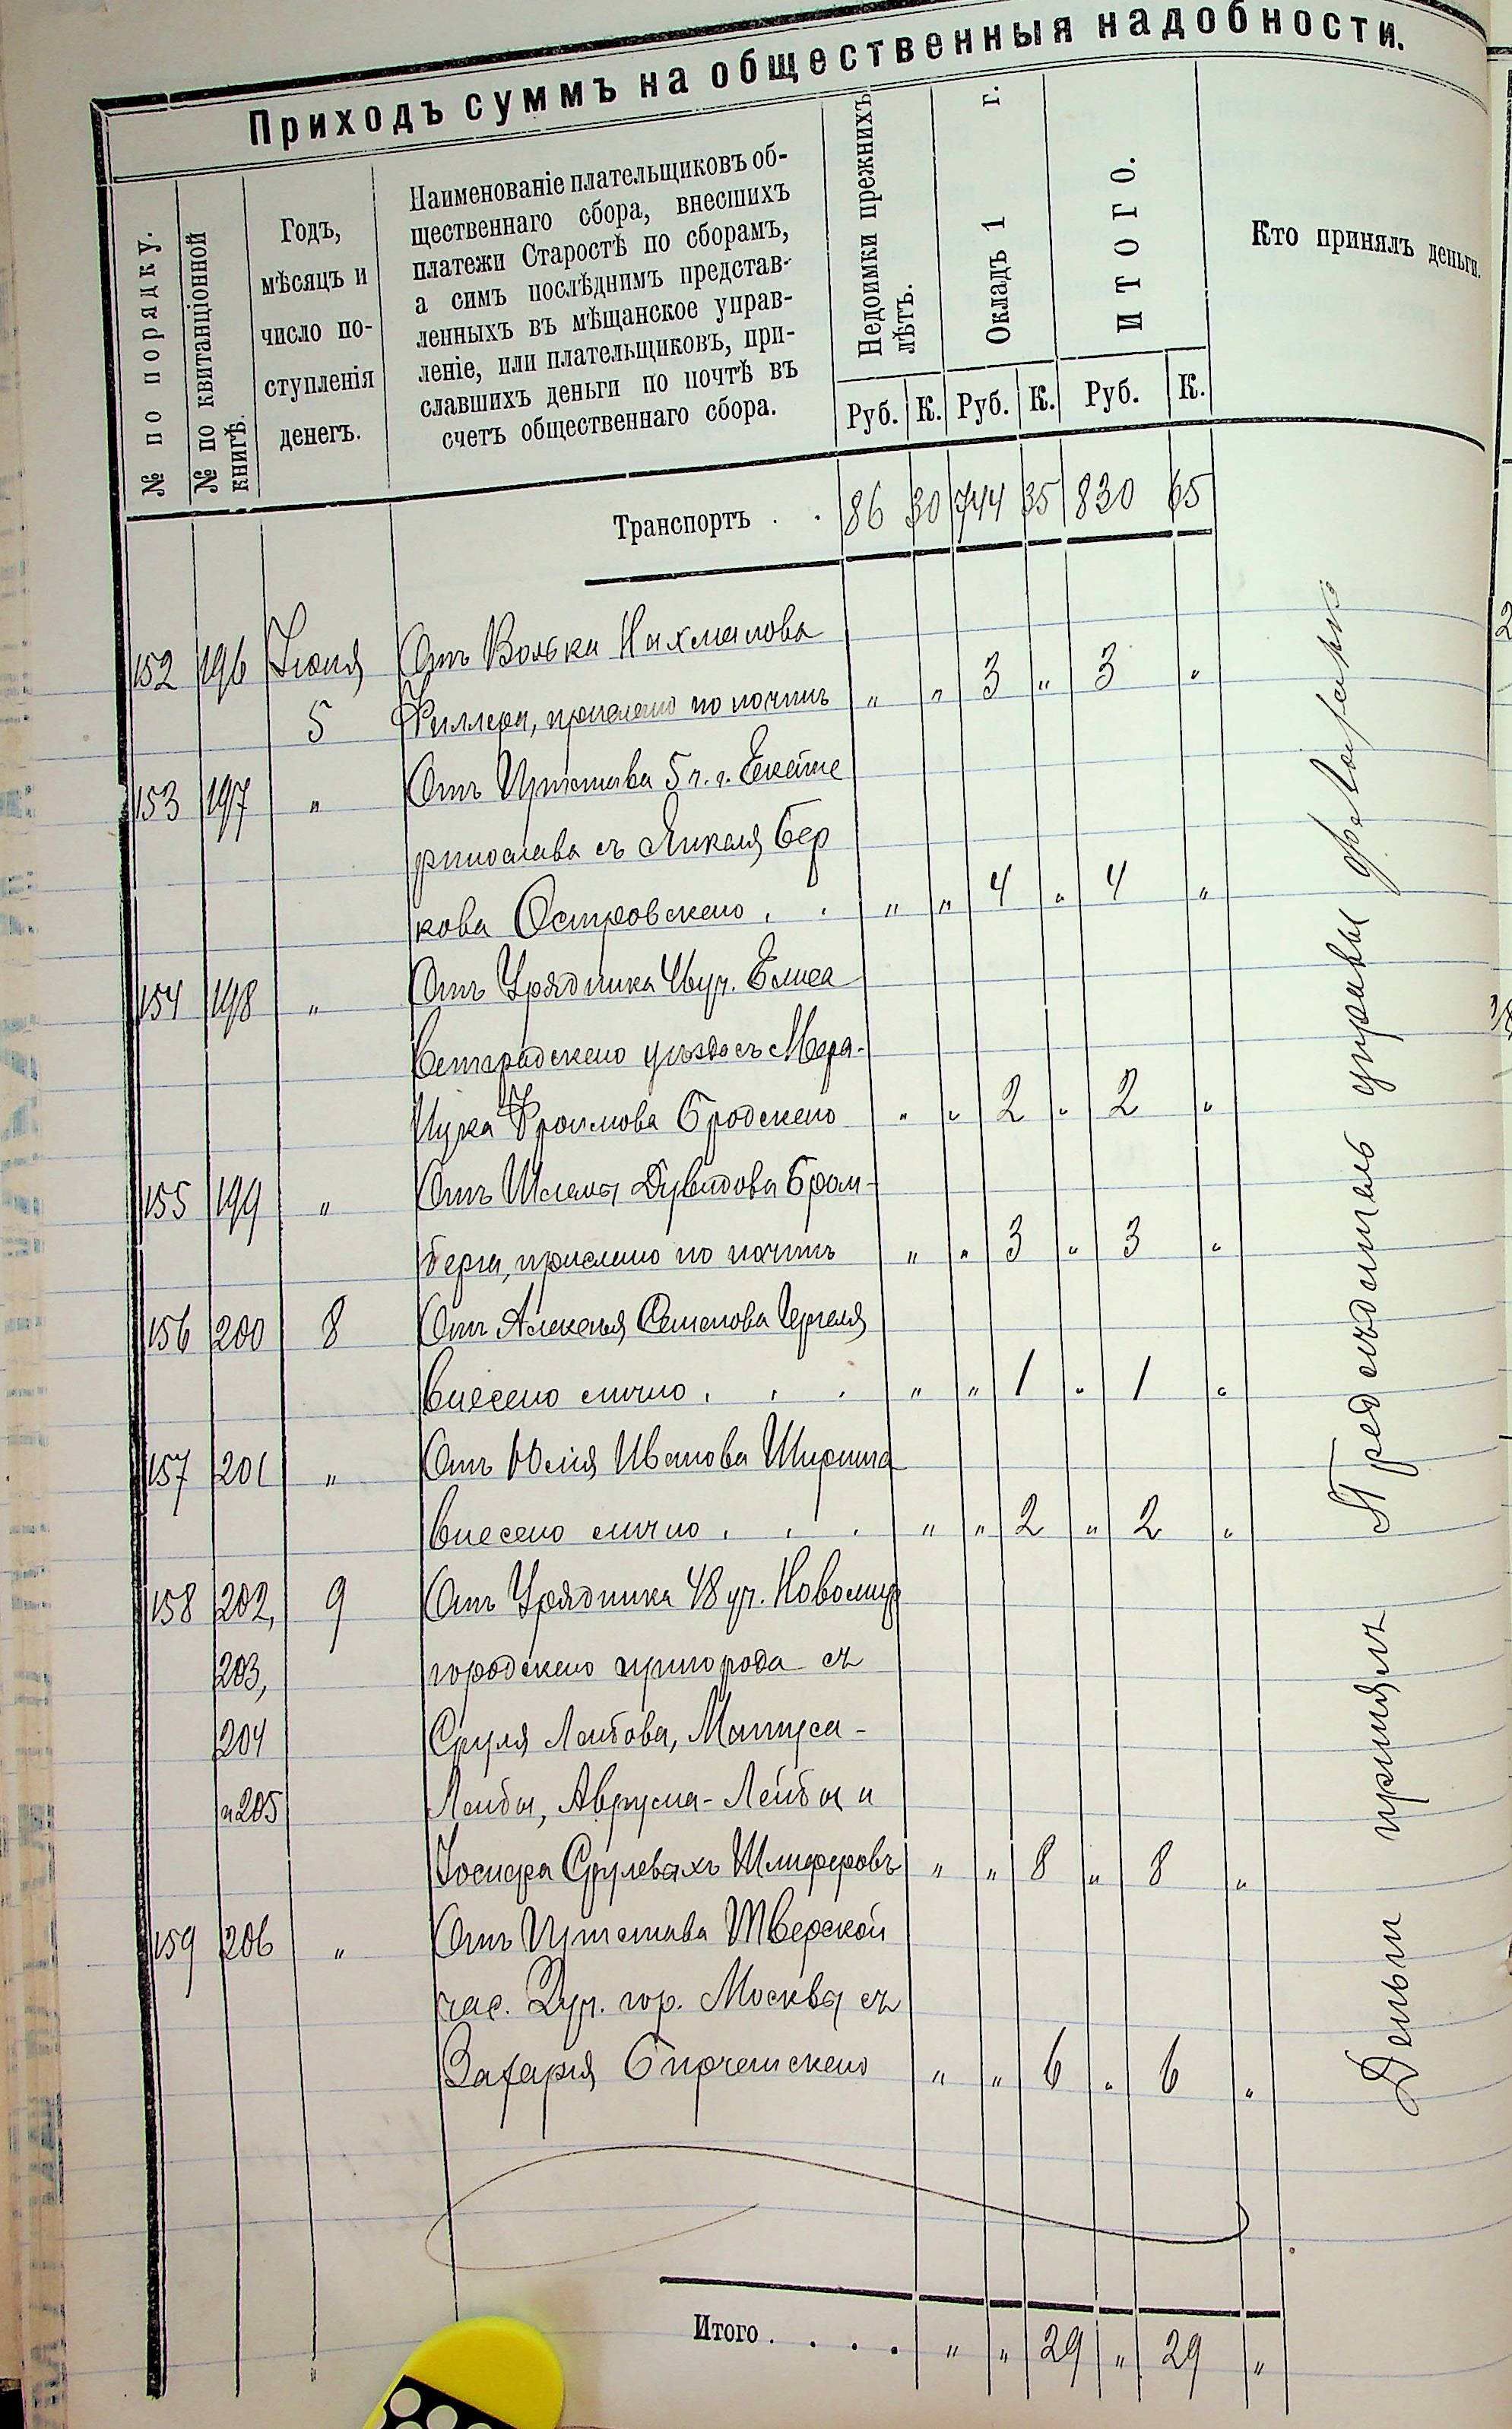 Приходъ суммъ на общественныя надобности.
№ по порядку.
№ по квитанціонной
книгѣ.
Годъ,
мѣсяцъ и
число по-
ступленія
денегъ.
Наименованіе плательщиковъ об-
щественнаго сбора, внесшихъ
платежи Старостѣ по сборамъ,
а симъ послѣднимъ представ-
ленныхъ въ мѣщанское управ-
леніе, или плательщиковъ, при-
славшихъ деньги по почтѣ въ
счетъ общественнаго сбора.
Недоимки прежнихъ
лѣтъ.
Окладъ 1 г.
ИТОГО.
Кто принялъ деньги.
Руб. К. Руб. К. Руб. К.
Транспортъ . . 86 30 744 35 830 65
152 196 Іюня Отъ Волька Нахманова
5 Филлера, прислано по почтѣ „ „ 3 „ 3 „
153 197 „ Отъ Пристава 5 ч. г. Екате
ринослава съ Янкеля Бер
кова Островскаго . . „ „ 4 „ 4 „
154 198 „ Отъ Урядника уч. Елиса
ветградскаго уѣзда съ
Фроимова Бродскаго „ „ 2 „ 2 „
155 199 „ Отъ Дувидова Бром-
берга, прислано по почтѣ „ „ 3 „ 3 „
156 200 8 Отъ Алексѣя Семенова
внесено лично . . . „ „ 1 „ 1 „
157 201 „ Отъ Юлія Иванова
внесено лично . . . „ „ 2 „ 2 „
158 202, 9 Отъ Урядника 48 уч. Новомир
203, городскаго пригорода съ
204 Сруля Лейбова,
и 205 Лейбы, Аврума-Лейбы и
Іосифа Срулевыхъ Шлиферовъ „ „ 8 „ 8 „
159 206 „ Отъ Пристава Тверской
час. 2 уч. гор. Москвы съ
Захарія „ „ 6 „ 6 „
Деньги принялъ Предсѣдатель управы
Итого . . . . „ „ 29 „ 29 „